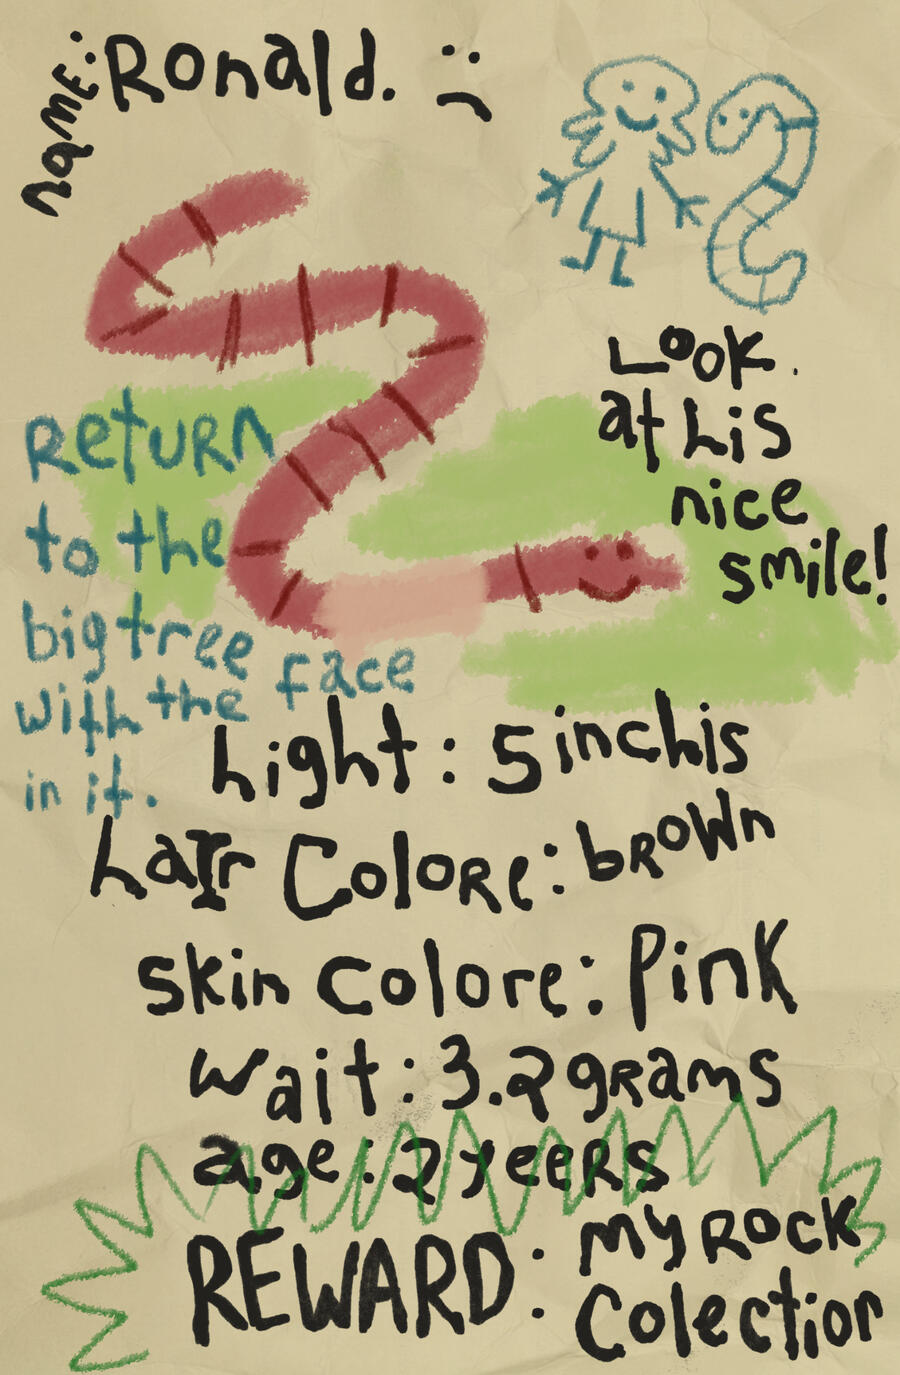 name: Ronald. :(
Look
at his
nice
smile!
Return
to the
big tree
with the face
in it.
hight: 5 inchis
hair Colore: brown
skin colore: Pink
wait: 3.2 grams
age: 2 yeers
REWARD: my Rock
Colection